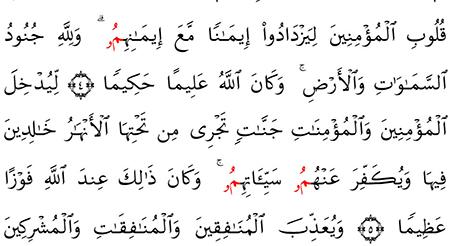 قُلُوبِ ٱلْمُؤْمِنِينَ لِيَزْدَادُوٓاْ إِيمَٰنًا مَّعَ إِيمَٰنِهِمُۥ ۗ وَلِلَّهِ جُنُودُ
ٱلسَّمَٰوَٰتِ وَٱلْأَرْضِ ۚ وَكَانَ ٱللَّهُ عَلِيمًا حَكِيمًا ۝٤ لِّيُدْخِلَ
ٱلْمُؤْمِنِينَ وَٱلْمُؤْمِنَٰتِ جَنَّٰتٍ تَجْرِى مِن تَحْتِهَا ٱلْأَنْهَٰرُ خَٰلِدِينَ
فِيهَا وَيُكَفِّرَ عَنْهُمُۥ سَيِّـَٔاتِهِمُۥ ۚ وَكَانَ ذَٰلِكَ عِندَ ٱللَّهِ فَوْزًا
عَظِيمًا ۝٥ وَيُعَذِّبَ ٱلْمُنَٰفِقِينَ وَٱلْمُنَٰفِقَٰتِ وَٱلْمُشْرِكِينَ